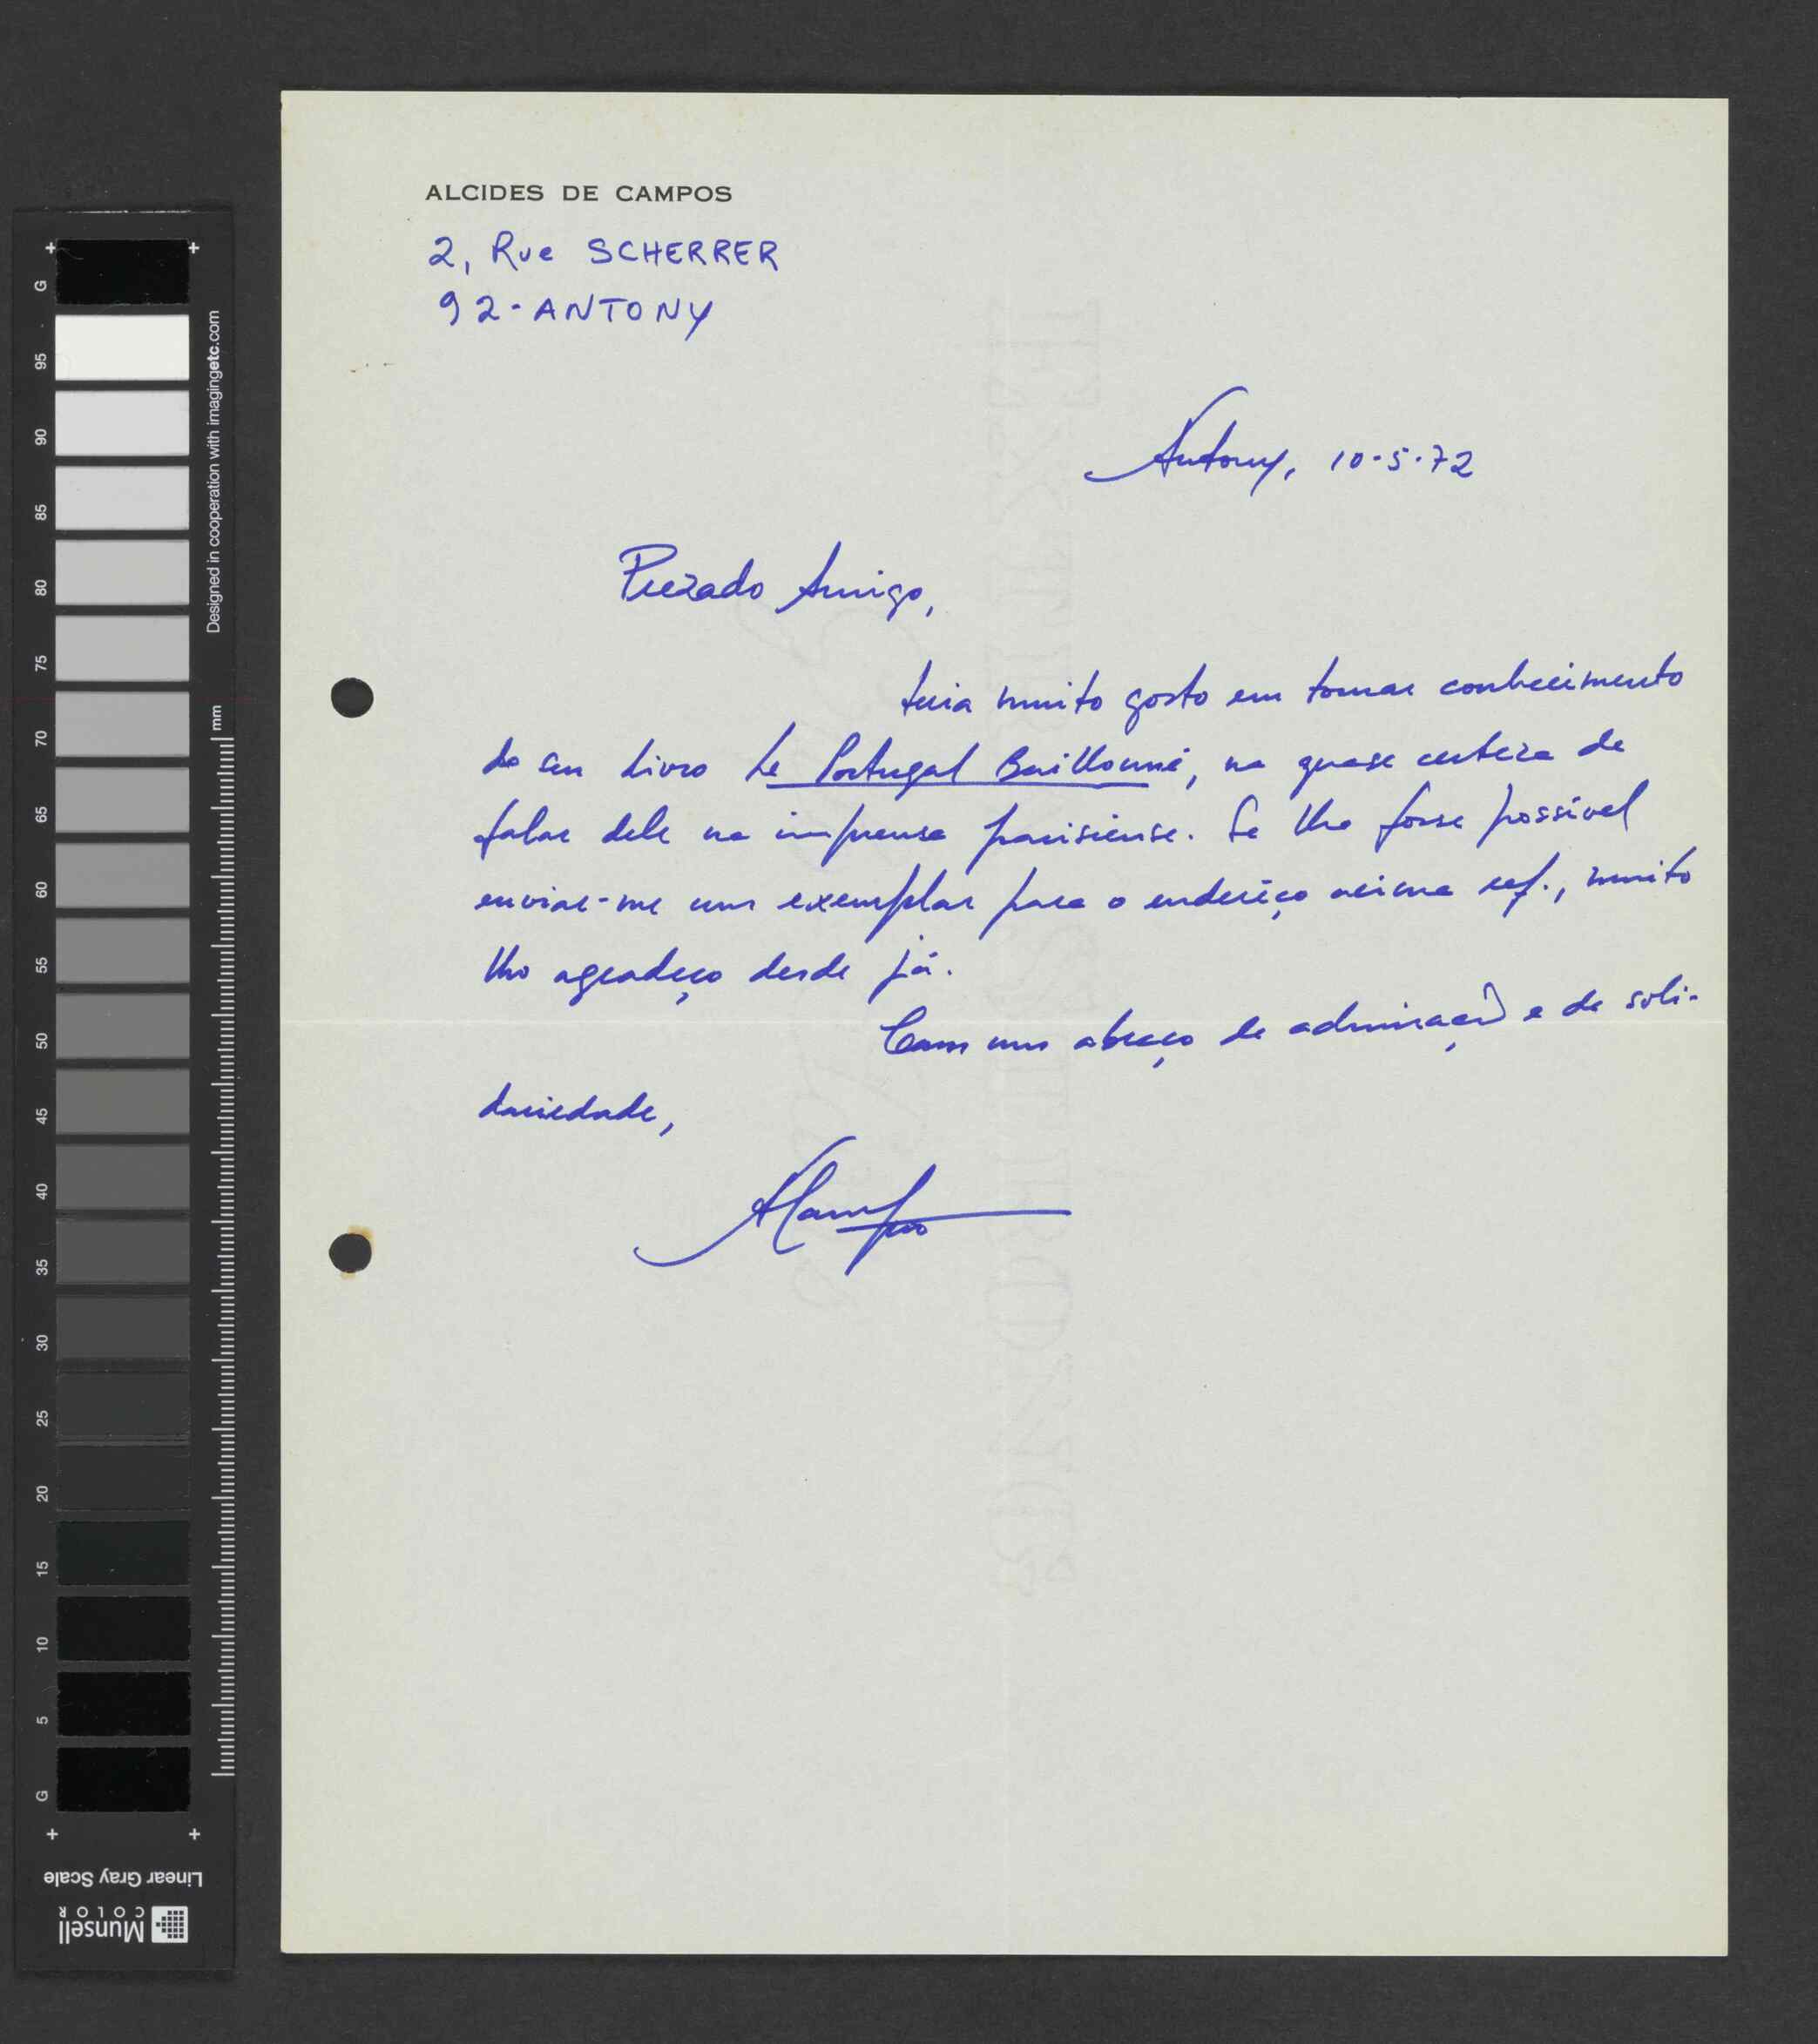 ALCIDES DE CAMPOS
2, Rue SCHERRER
92-ANTONY
Antony, 10-5-72
Prezado Amigo,
teria muito gosto em tomar conhecimento
do seu livro Le Portugal Baillonné, na quase certeza de
falar dele na imprensa parisiense. Se lhe fosse possível
enviar-me um exemplar para o enderêço acima ref., muito
lho agradeço desde já.
Com um abraço de admiração e de soli-
dariedade,
ACampos
G
95
90
85
80
75
70
65
60
55
50
45
40
35
30
25
20
15
10
5
G
Designed in cooperation with imagingetc.com
mm
Linear Gray Scale
Munsell
COLOR